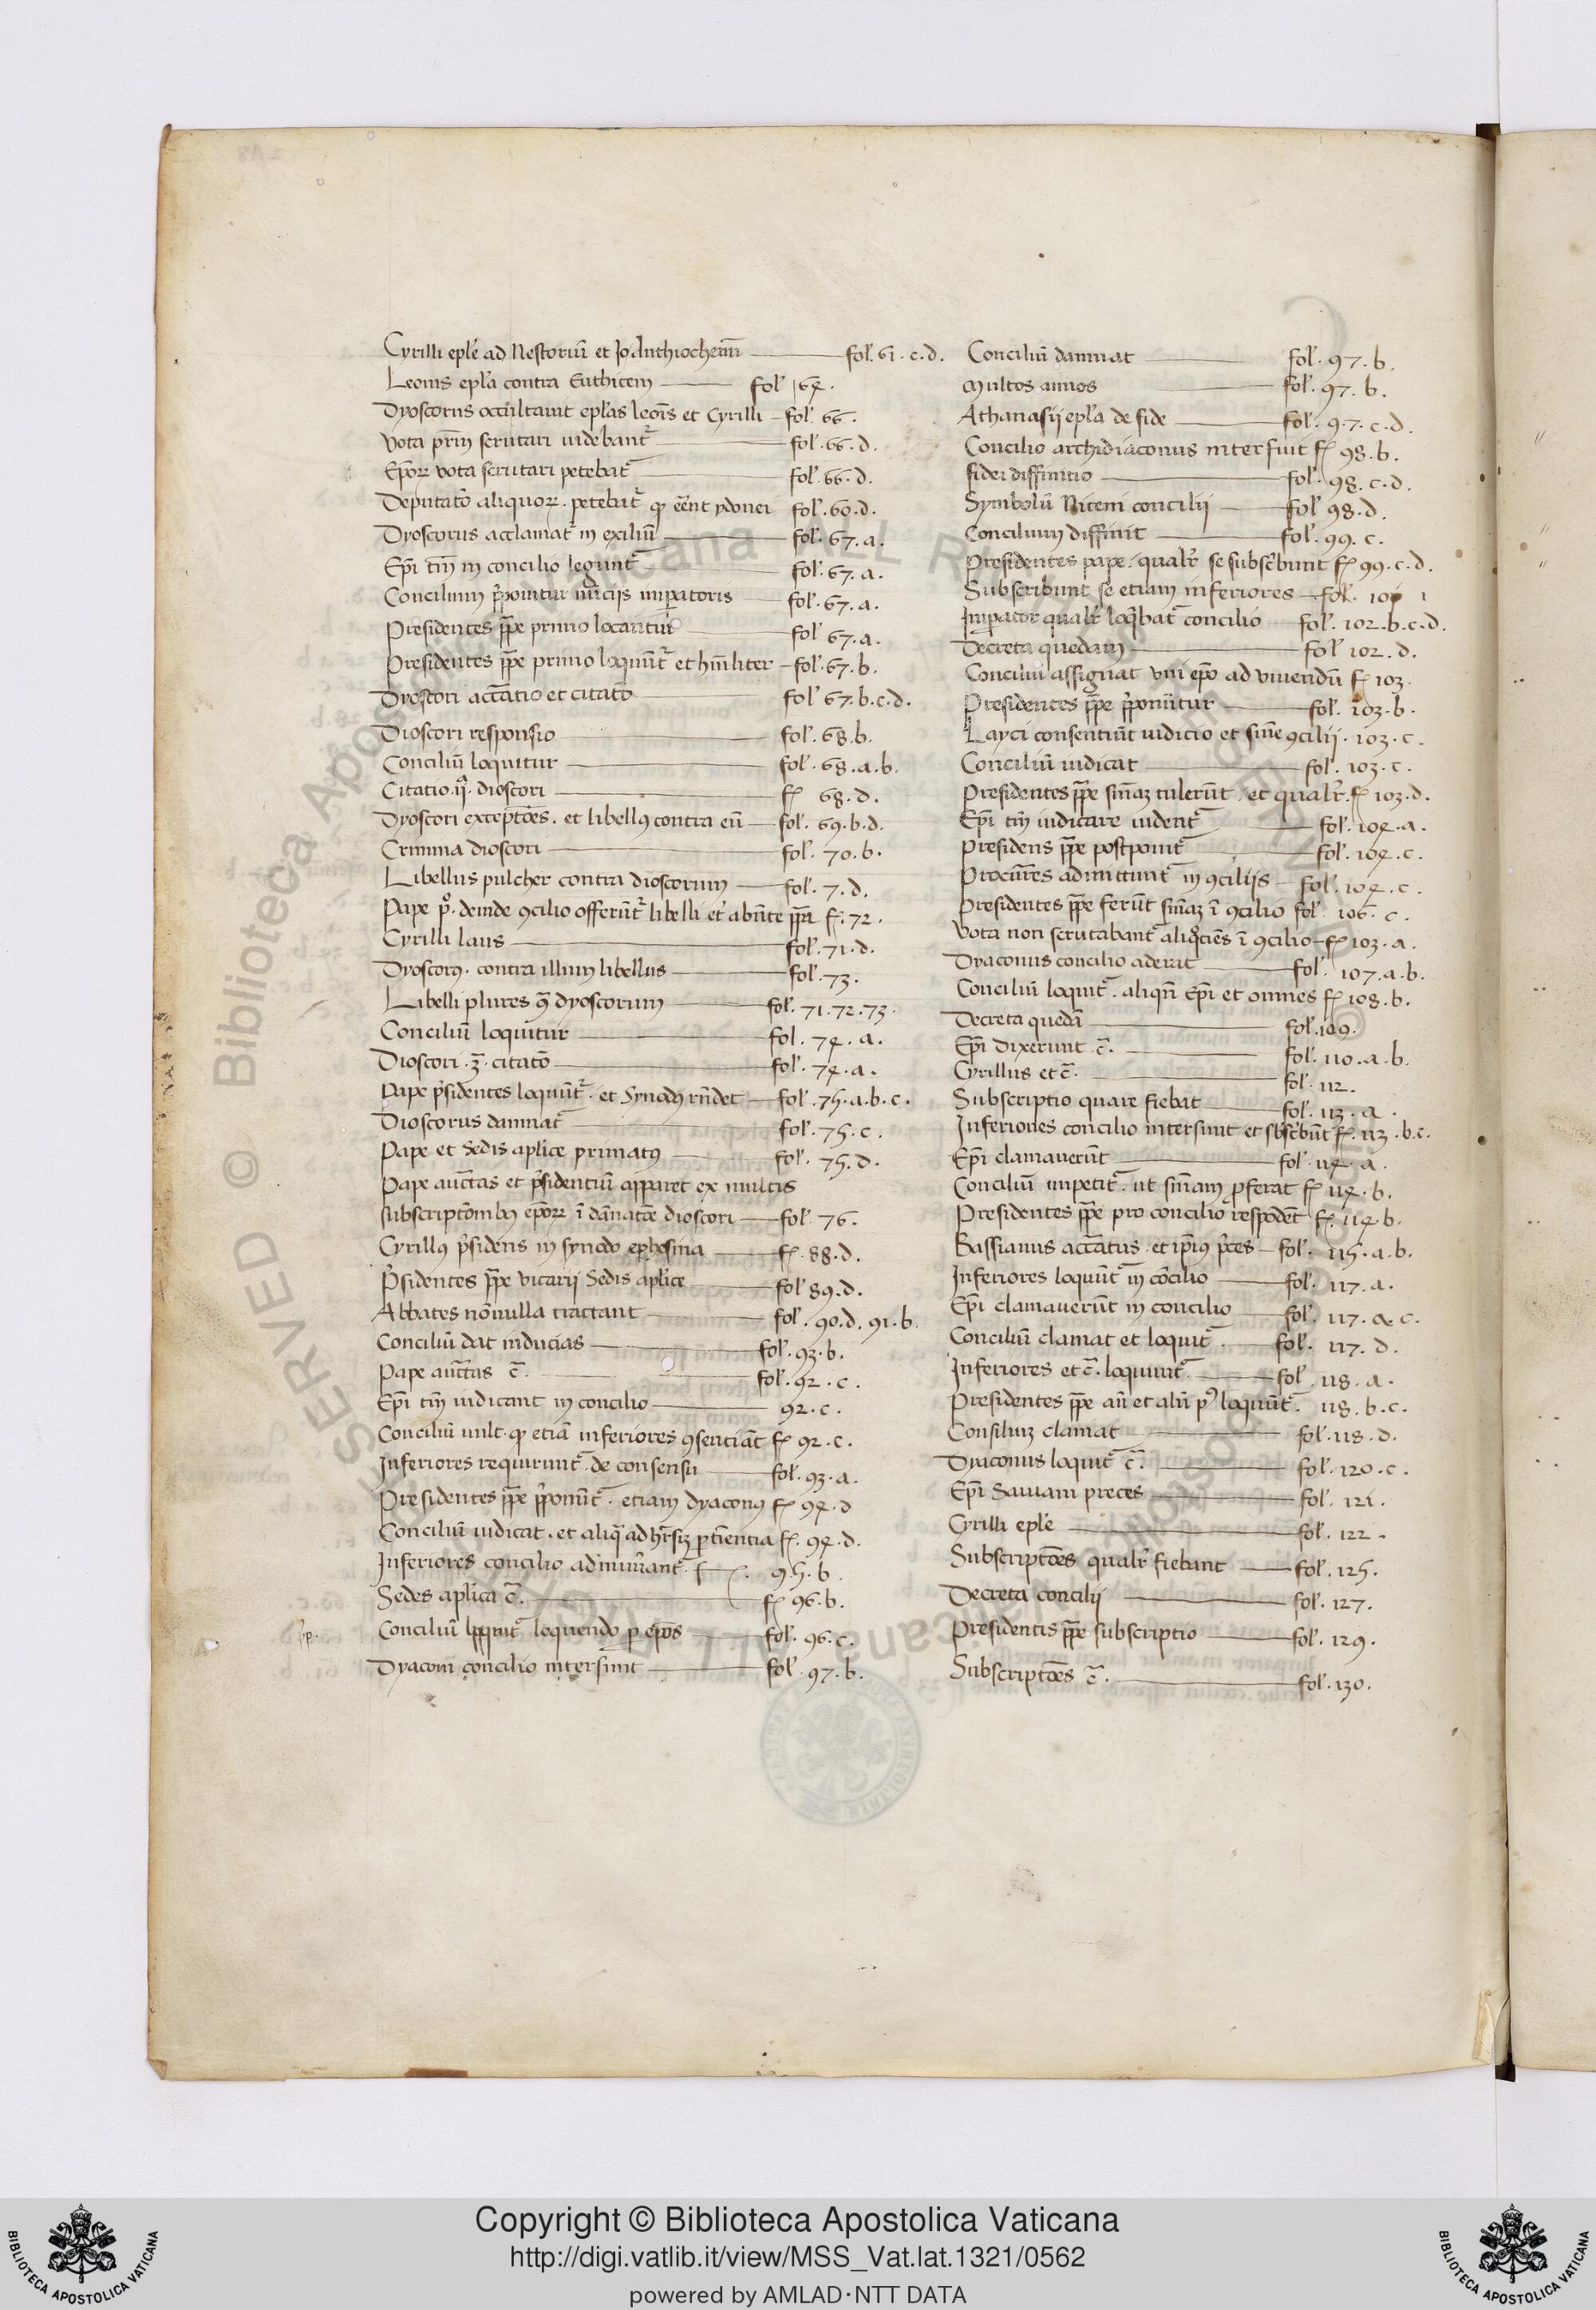 Cyrilli eple ad Nestoriū et Jo Anthiochenū — fol. 61. c. d.
Leonis epla contra Euthicem — fol 64.
Dyoscorus occultauit eplas leōis et Cyrilli — fol. 66.
Vota prm̄ scrutari uidebant᷑ — fol. 66. d.
Ep̄orꝝ vota scrutari petebat᷑ — fol. 66. d.
Deputat̄o aliquorꝝ. petebat᷑ ꝙ eēnt ydonei fol. 60. d.
Dyoscorus acclamat᷑ in exiliū — fol. 67. a.
Ep̄i tm̄ in concilio legunt᷑ — fol. 67. a.
Concilium p̄ponitur nūciis imꝑatoris — fol. 67. a.
Presidentes pp̄e primo locantur — fol 67. a.
Presidentes pp̄e primo loquūt᷑ et hūiliter — fol. 67. b.
Dyoscori acc̄atio et citat̄o — fol 67. b. c. d.
Dioscori responsio — fol. 68. b.
Conciliū loquitur — fol. 68. a. b.
Citatio .ij. dioscori — f. 68. d.
Dyoscori except̄oes. et libellꝰ contra eū — fol. 69. b. d.
Crimina dioscori — fol. 70. b.
Libellus pulcher contra dioscorum — fol. 7. d.
Pape p̊. deinde ꝯcilio offerūt᷑ libelli et abn̄te pp̄a f. 72.
Cyrilli laus — fol. 71. d.
Dyoscorꝰ. contra illum libellus — fol. 73.
Libelli plures ꝯ̄ dyoscorum — fol. 71. 72. 73.
Conciliū loquitur — fol. 74. a.
Dioscori .3ᵃ. citat̄o — fol. 74. a.
Pape p̄sidentes loquūt᷑. et Synodꝰ rn̄det — fol. 75. a. b. c.
Dioscorus damnat᷑ — fol. 75. c.
Pape et Sedis aplice primatꝰ — fol. 75. d.
Pape auct̄as et p̄sidentiū apparet ex multis
subscript̄oibꝰ ep̄orꝝ ī dānat̄oe dioscori — fol. 76.
Cyrillꝰ p̄sidens in synodo ephesina — f. 88. d.
P̄sidentes pp̄e vicarij Sedis aplice — fol 89. d.
Abbates nōnulla tractant — fol. 90. d. 91. b.
Conciliū dat inducias — fol. 93. b.
Pape auct̄as c̄. — fol. 92. c.
Ep̄i tm̄ iudicant in concilio — 92. c.
Conciliū uult. ꝙ etiā inferiores ꝯsentiāt f. 92. c.
Inferiores requirunt᷑. de consensu — fol. 93. a.
Presidentes pp̄e p̄ponūt᷑. etiam dyaconꝰ f. 94. d
Conciliū iudicat. et aliq̄ ad hr̄sꝫ ꝑtinentia f. 94. d.
Inferiores concilio adnum̄ant᷑. f. 95. b.
Sedes aplica c̄. — f. 96. b.
Conciliū loquit᷑ loquendo ꝑ ep̄os — fol. 96. c.
Dyaconi concilio intersunt — fol. 97. b.
Conciliū damnat — fol. 97. b.
Multos annos — fol. 97. b.
Athanasii epla de fide — fol. 97. c. d.
Concilio archidiaconus interfuit f. 98. b.
Fidei diffinitio — fol. 98. c. d.
Symbolū Niceni concilii — fol 98. d.
Concilium diffinit — fol. 99. c.
Presidentes pape. qualr̄ se subscr̄bunt f. 99. c. d.
Subscribunt se etiam inferiores — fol. 101
Imꝑator qualr̄ loq̄bat᷑ concilio — fol. 102. b. c. d.
Decreta quedam — fol 102. d.
Conciliū assignat vni ep̄o ad viuendū f. 103.
Presidentes pp̄e p̄ponūtur — fol. 103. b.
Layci consentiūt iudicio et sniē ꝯcilii. 103. c.
Conciliū iudicat — fol. 103. c.
Presidentes pp̄e sniāꝫ tulerūt. et qualr̄. f. 103. d.
Ep̄i tm̄ iudicare uident᷑ — fol. 104. a.
Presidens pp̄e postponit᷑ — fol. 104. c.
Procur̄es admittunt᷑ in ꝯciliis — fol. 104. c.
Presidentes pp̄e ferūt sniāꝫ ī ꝯcilio fol. 106. c.
Vota non scrutabant᷑ aliqciēs ī ꝯcilio — f. 103. a.
Dyaconus concilio aderat — fol. 107. a. b.
Conciliū loquit᷑. aliqn̄ Ep̄i et omnes f. 108. b.
Decreta quedā — fol. 109.
Ep̄i dixerunt c̄. — fol. 110. a. b.
Cyrillus et c̄. — fol. 112.
Subscriptio quare fiebat — fol. 113. a.
Inferiores concilio intersunt et sbscr̄būt f. 113. b. c.
Ep̄i clamauerūt — fol. 114. a.
Conciliū impetit᷑. ut sniām ꝓferat f. 114. b.
Presidentes pp̄e pro concilio respōdēt f. 114. b.
Bassianus acc̄atus. et ip̄ius p̄ces — fol. 115. a. b.
Inferiores loquūt᷑ in cōcilio — fol. 117. a.
Ep̄i clamauerūt in concilio — fol. 117. a. c.
Conciliū clamat et loquit᷑. — fol. 117. d.
Inferiores et c̄. loquunt᷑ — fol. 118. a.
Presidentes pp̄e an̄ et alii pꝰ loquūt᷑. 118. b. c.
Consiliuꝫ clamat — fol. 118. d.
Dyaconus loquit᷑ c̄. — fol. 120. c.
Ep̄i Sauuani preces — fol. 121.
Cyrilli eple — fol. 122.
Subscript̄oes qualr̄ fiebant — fol. 125.
Decreta concilij — fol. 127.
Presidentis pp̄e subscriptio — fol. 129.
Subscript̄oes c̄. — fol. 130.
Copyright © Biblioteca Apostolica Vaticana
http://digi.vatlib.it/view/MSS_Vat.lat.1321/0562
powered by AMLAD·NTT DATA
BIBLIOTECA APOSTOLICA VATICANA
BIBLIOTECA APOSTOLICA VATICANA